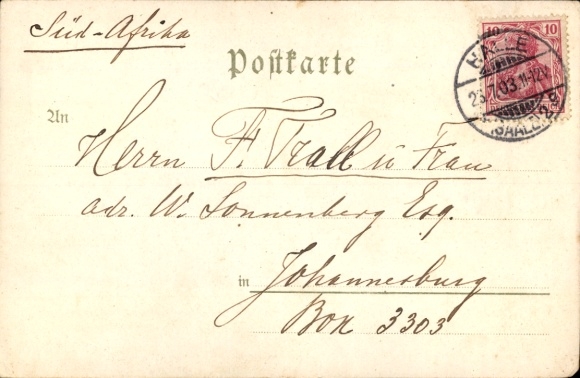 Süd-Afrika
10
HALLE
23.7.03.11-12V.
(SAALE) 2
Postkarte
An
Herrn Trall u Frau
adr. W. Sonnenberg Esq.
in Johannesburg
Box 3303